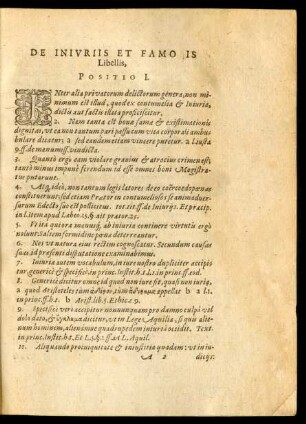 DE INIVRIIS ET FAMO IS
Libellis,
POSITIO I.
INter alia privatorum delictorum genera, non mi-
nimum est illud, quod ex contumelia & Iniuria,
dictis aut factis illata proficiscitur.
2. Nam tanta est bona fama & existimationis
dignitas, ut ea non tantum pari passu cum vita corporali ambu-
lare dicatur, a sed eandem etiam vincere putetur. a l. iusta
9. ff de manumiss. vindicta.
3. Quantò ergò eam violare gravius & atrocius crimen est
tantò minus impunè ferendum id esse omnes boni Magistra-
tus putarunt.
4. Atq; ideò, non tantum legislatores de eo coërcendo pœnas
constituerunt sed etiam Prætor contumeliosos se animadver-
surum Edicto suo est pollicitus. tot. tit. ff. de Iniurijs. Et præcip.
in l. Item apud Labeo. 15. § ait prætor. 25.
5. Pœna quiora monueq; ab iniuria continere virtutis ergò
noluit saltem formidine pœnæ deterreantur.
6. Rei ut natura eius rectius cognoscatur. Secundum causas
suas id præsenti disputatione examinabimus.
7. Iniuria autem vocabulum, in iure nostro dupliciter accipi-
tur genericè & specificè a in princ. Instit. h. t. l. 1. in princ. ff. eod.
8. Genericè dicitur omne id quod non iure fit, quasi non iuria,
quod Aristoteles appellat b a l. 1.
in princ. ff. h. t. b Arist. lib. 5. Ethic. c 9.
9. Specificè verò accipitur nonnunquam pro damno culpâ vel
dolo dato, & dicitur, ut in Lege Aquilia, si quis alie-
num hominem, alienámve quadrupedem iniuriâ occidit. Text.
in princ. Instit. h. t. Et l. 5. § 1. ff ad L. Aquil.
10. Aliquando pro iniquitate & iniustitia quadam: ut in iu-
A 2 dicijs: